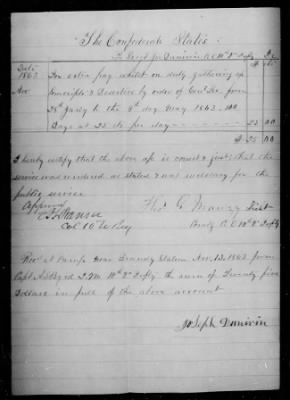 The Confederate States
To Joseph Dunivin Co C 10th V Infty Dr
Date $ cts
1863
Nov For extra pay whilst on duty gathering up
Conscripts & Deserters by order of Genl Lee from
28th Jany to the 8th day May 1863. 100
Days at 25 cts per day 25 00
$ 25 00
I hereby certify that the above a/c is correct & just; that the
service was rendered as stated & was necessary for the
public service
Approved
Col 10th Va Regt
Lieut
Comdg Co C 10th V Infty
Recd at Camp near Brandy Station Nov 13. 1863 from
Capt A Q.M. 10th V Infty the sum of Twenty five
Dollars in full of the above account
Joseph Dunivin